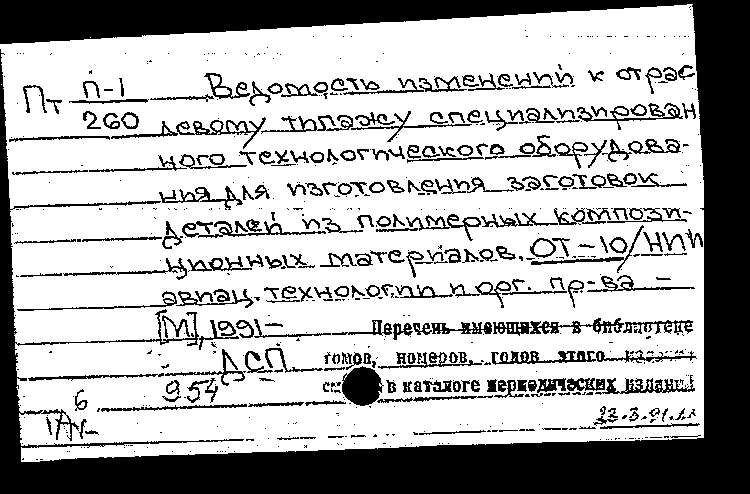 Пт П-1 Ведомость изменений к отрас
260 левому типажу специализирован
ного технологического оборудова-
ния для изготовления заготовок
деталей из полимерных компози-
ционных материалов. ОТ-10/НИИ
авиац. технологии и орг. пр-ва –
[М], 1991 – Перечень имеющихся в библиотеке
ДСП томов, номеров, годов этого
954 в каталоге периодических изданий
6
23.3.91